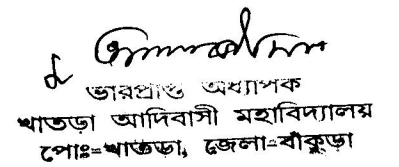 ভারপ্রাপ্ত অধ্যাপক
খাতড়া আদিবাসী মহাবিদ্যালয়
পোঃ=খাতড়া, জেলা=বাঁকুড়া